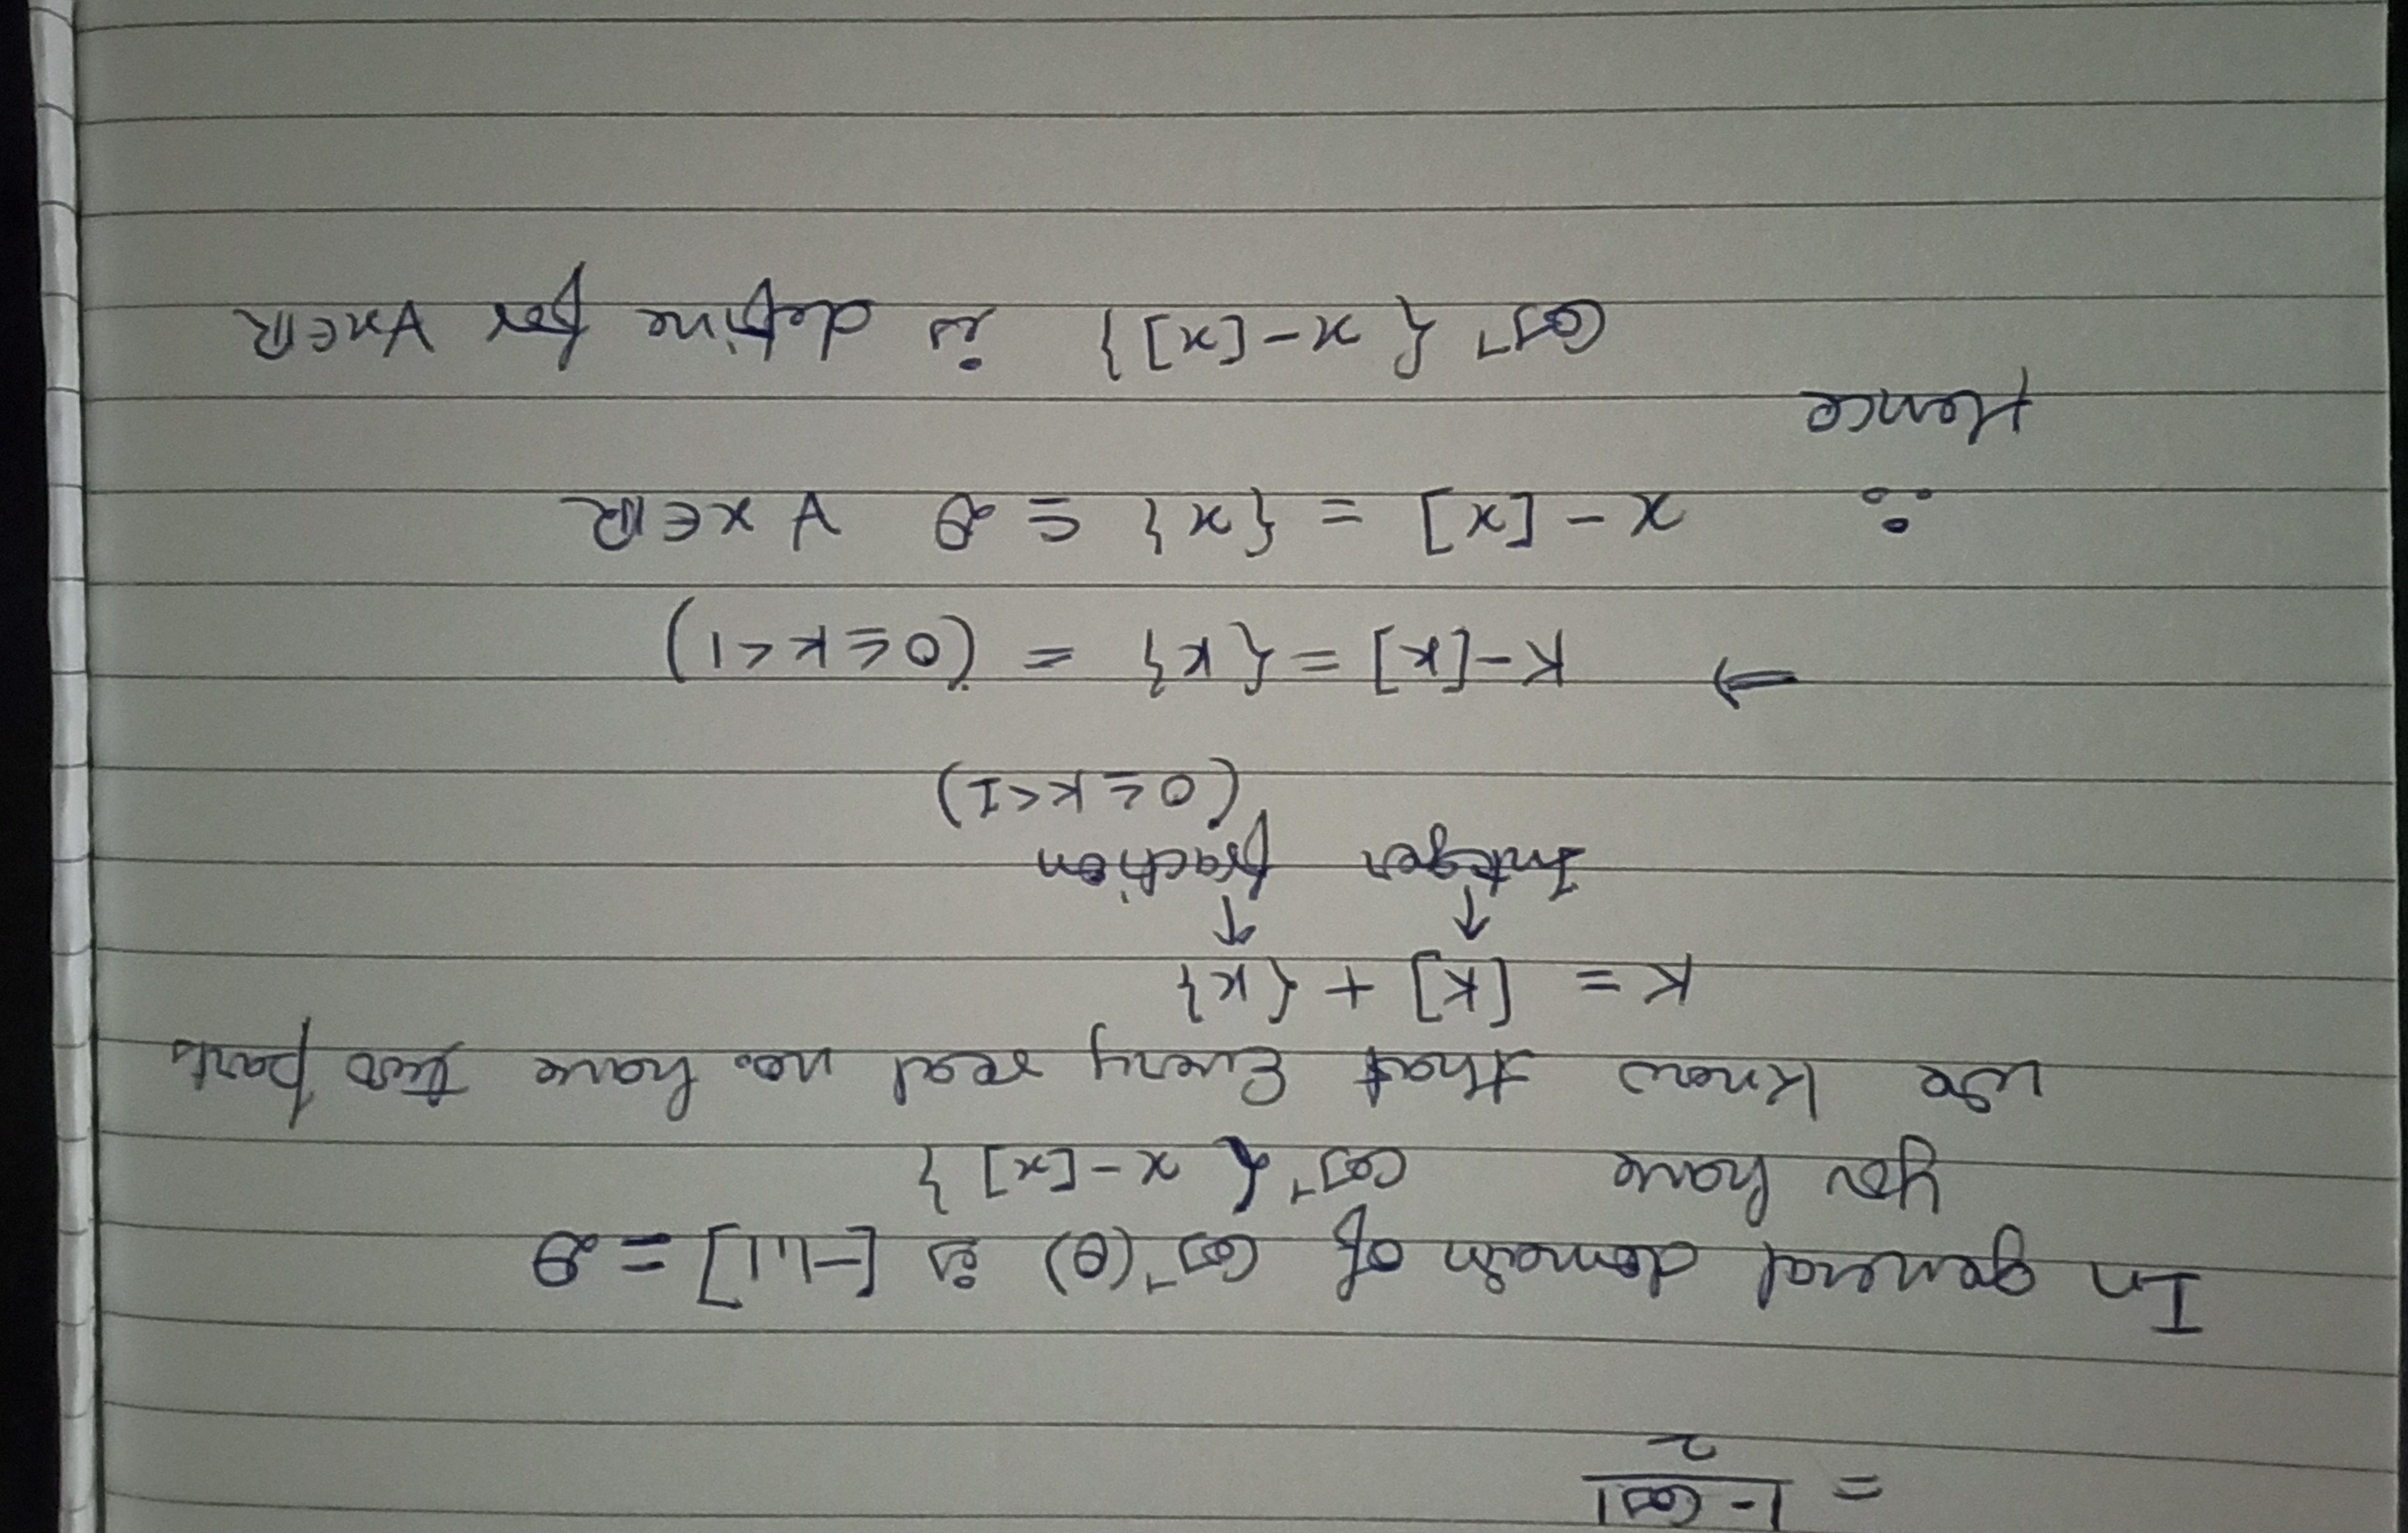 = 1-cos1 / 2
In general domain of cos⁻¹(θ) is [-1,1] = θ
you have cos⁻¹{x-[x]}
we know that Every real no. have two parts
K = [K] + {K}
↓ ↓
Integer fraction
(0≤K<1)
⇒ K-[K] = {K} = (0≤K<1)
∴ x-[x] = {x} ⊆ θ ∀ x∈ℝ
Hence
cos⁻¹{x-[x]} is define for ∀x∈ℝ